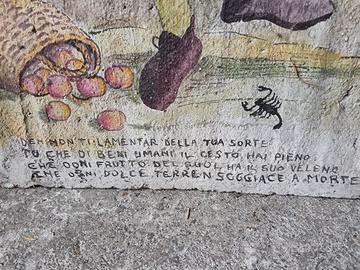 DEH NON TI LAMENTAR DELLA TUA SORTE
TU CHE DI BENI UMANI IL CESTO HAI PIENO
CHÈ OGNI FRUTTO DEL SUOL HA IL SUO VELENO
E OGNI DOLCE TERREN SOGGIACE A MORTE